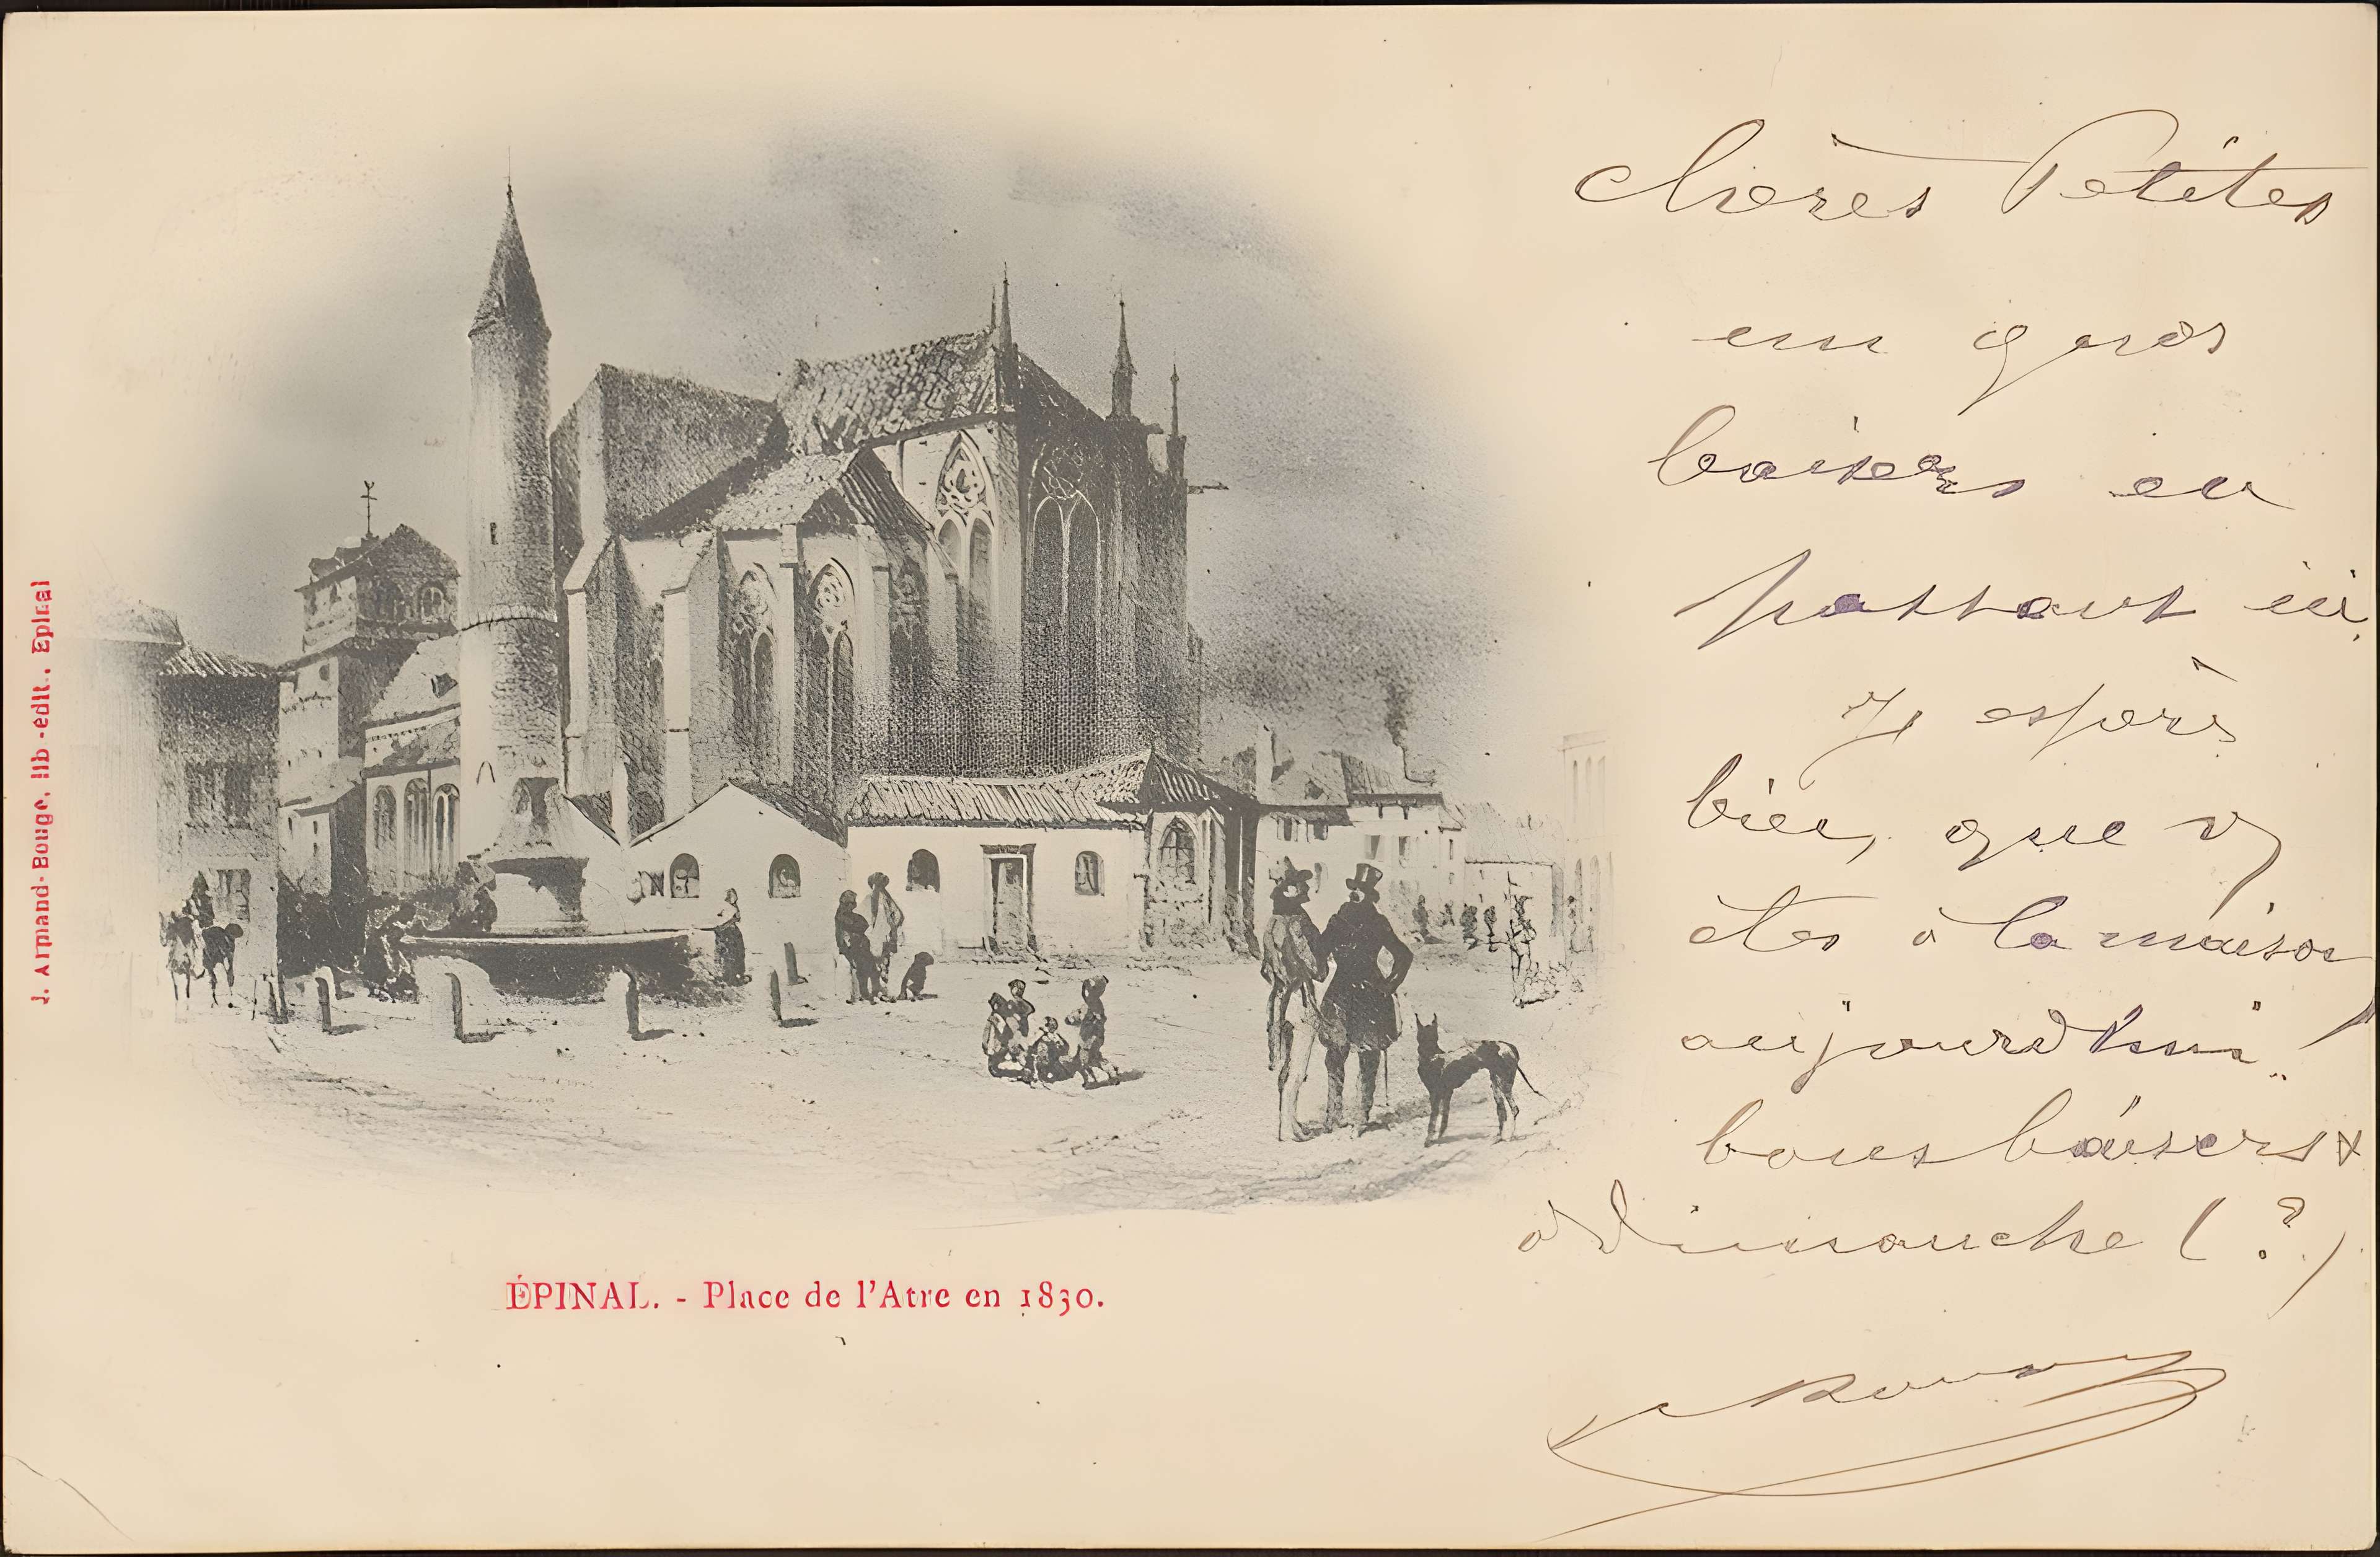 chères Petites
un gros
baisers en
passant ici,
Je espère
bien, que v
êtes à la maison
aujourd'hui
bons baisers &
à dimanche (?)
ÉPINAL. - Place de l'Atre en 1830.
J. Armand-Bouge, lib.-édit., Epinal